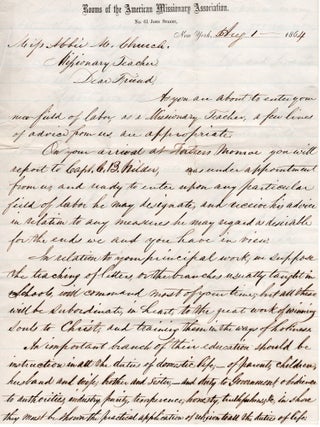 Rooms of the American Missionary Association.
No. 61 John Street,
New York, Aug 1 1864
Miss Abbie M. Church.
Missionary Teacher
Dear Friend
As you are about to enter your
new field of labor as a Missionary Teacher, a few lines
of advice from us are appropriate.
On your arrival at Fortress Monroe you will
report to Capt. C. B. Wilder, as under appointment
from us and ready to enter upon any particular
field of labor he may designate, and receive his advice
in relation to any measures he may regard as desirable
for the ends we and you have in view.
In relation to your principal work, we suppose
the teaching of letters or the branches usually taught in
Schools, will command most of your time, but all these
will be subordinate, in heart, to the great work of winning
souls to Christ, and training them in the way of holiness
An important branch of their education should be
instruction in all the duties of domestic life, - of parents children,
husband and wife, brother and sister, - and duty to Government obedience
to authorities, industry, purity, temperance, honesty, truthfulness, &c, in short
they must be shown the practical application of religion to all the duties of life.